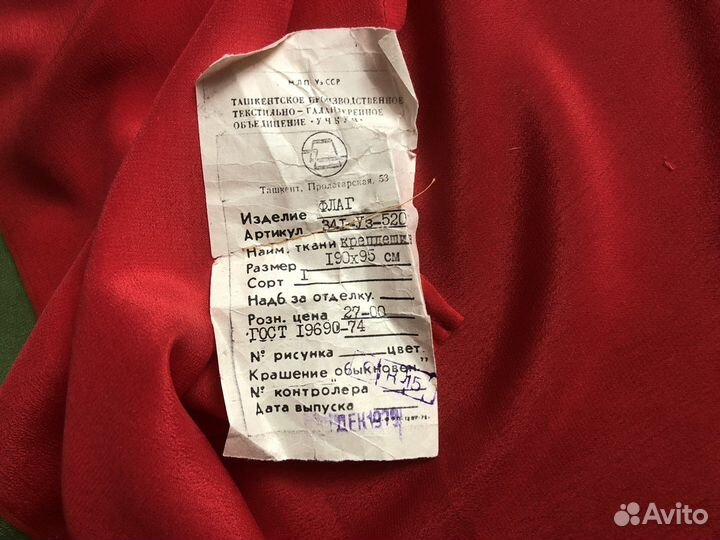 МЛП УзССР
ТАШКЕНТСКОЕ ПРОИЗВОДСТВЕННОЕ
ТЕКСТИЛЬНО-ГАЛАНТЕРЕЙНОЕ
ОБЪЕДИНЕНИЕ "УЧКУН"
Ташкент, Пролетарская, 53
Изделие ФЛАГ
Артикул 34I-Уз-520
Найм. ткани
Размер I90х95 см
Сорт I
Надб. за отделку
Розн. цена 27-00
ГОСТ I9690-74
№ рисунка цвет
Крашение "обыкновен"
№ контролера К 15
Дата выпуска
ДЕК1979
Avito